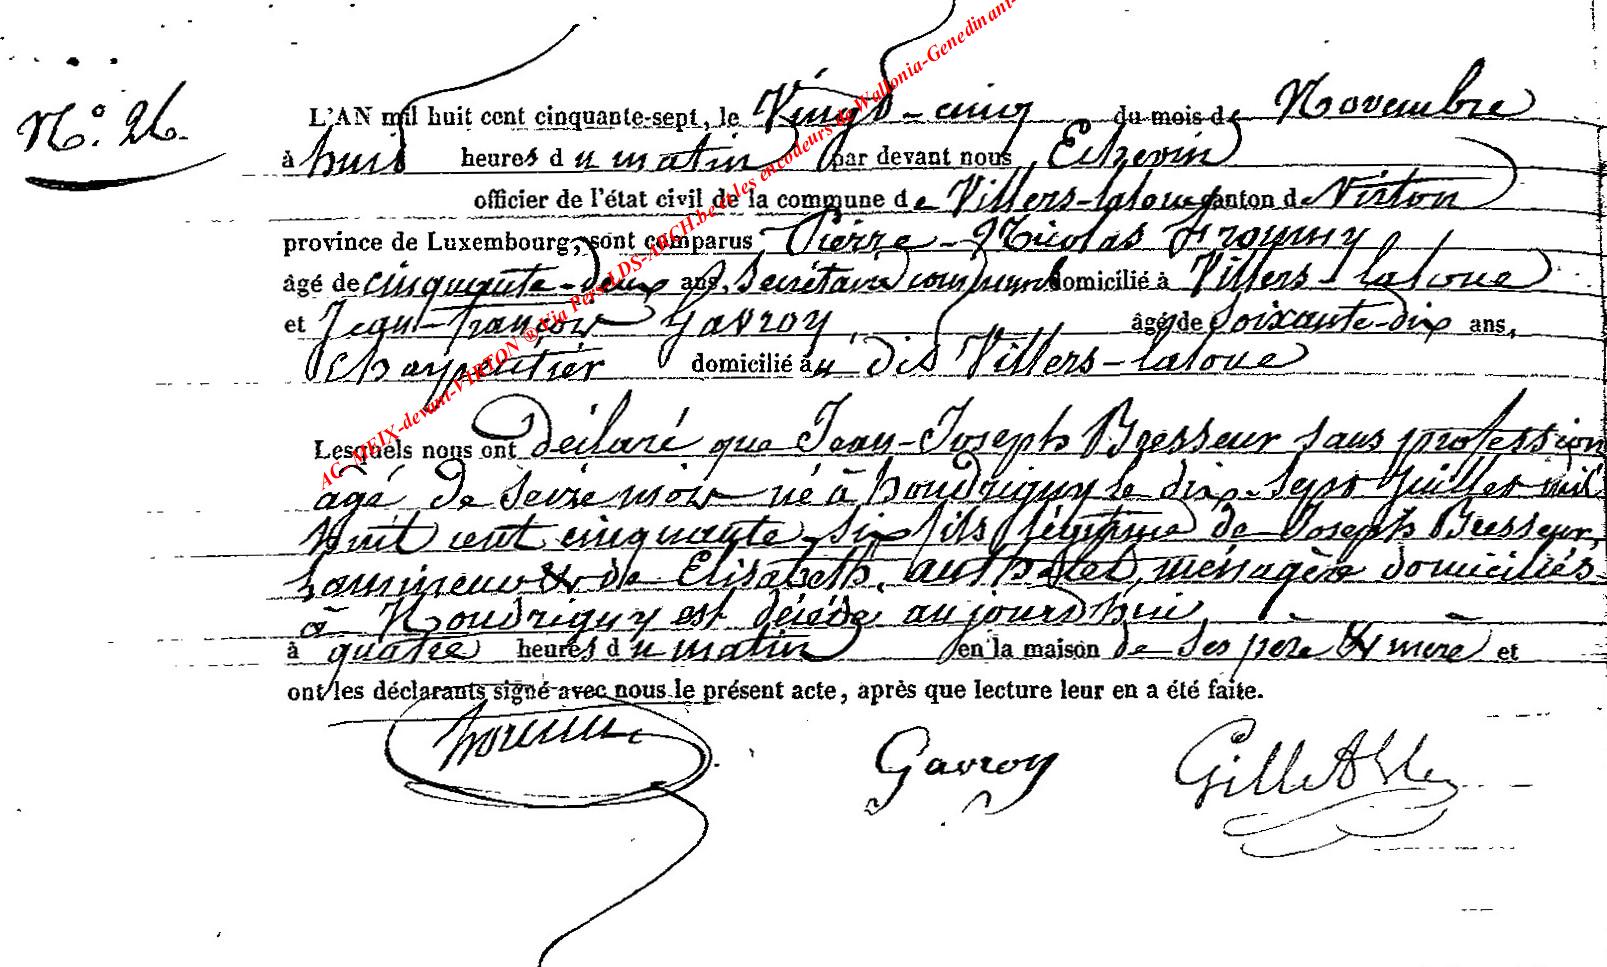 N.° 26.
L'AN mil huit cent cinquante-sept, le Vingt-cinq du mois de Novembre
à huit heures du matin par devant nous Echevin
officier de l'état civil de la commune de Villers-laloue canton de Virton
province de Luxembourg, sont comparus Pierre-Nicolas
âgé de cinquante-deux ans, Secrétaire communal domicilié à Villers-laloue
et Jean-françois Gavroy, âgé de soixante-dix ans,
Charpentier domicilié au dit Villers-laloue
Lesquels nous ont déclaré que Jean-Joseph Bresseur sans profession
agé de seize mois né à houdrigny le dix-sept juillet mil
huit cent cinquante-six fils légitime de Joseph Bresseur,
& de Elisabeth, ménagère domiciliés
à Houdrigny est décédé aujourd'hui
à quatre heures du matin en la maison de ses père & mère et
ont les déclarants signé avec nous le présent acte, après que lecture leur en a été faite.
Gavroy
AC-MEIX-devant-VIRTON ® Via Perso LDS-ARCH.be et les encodeurs de Wallonia-Genedinant